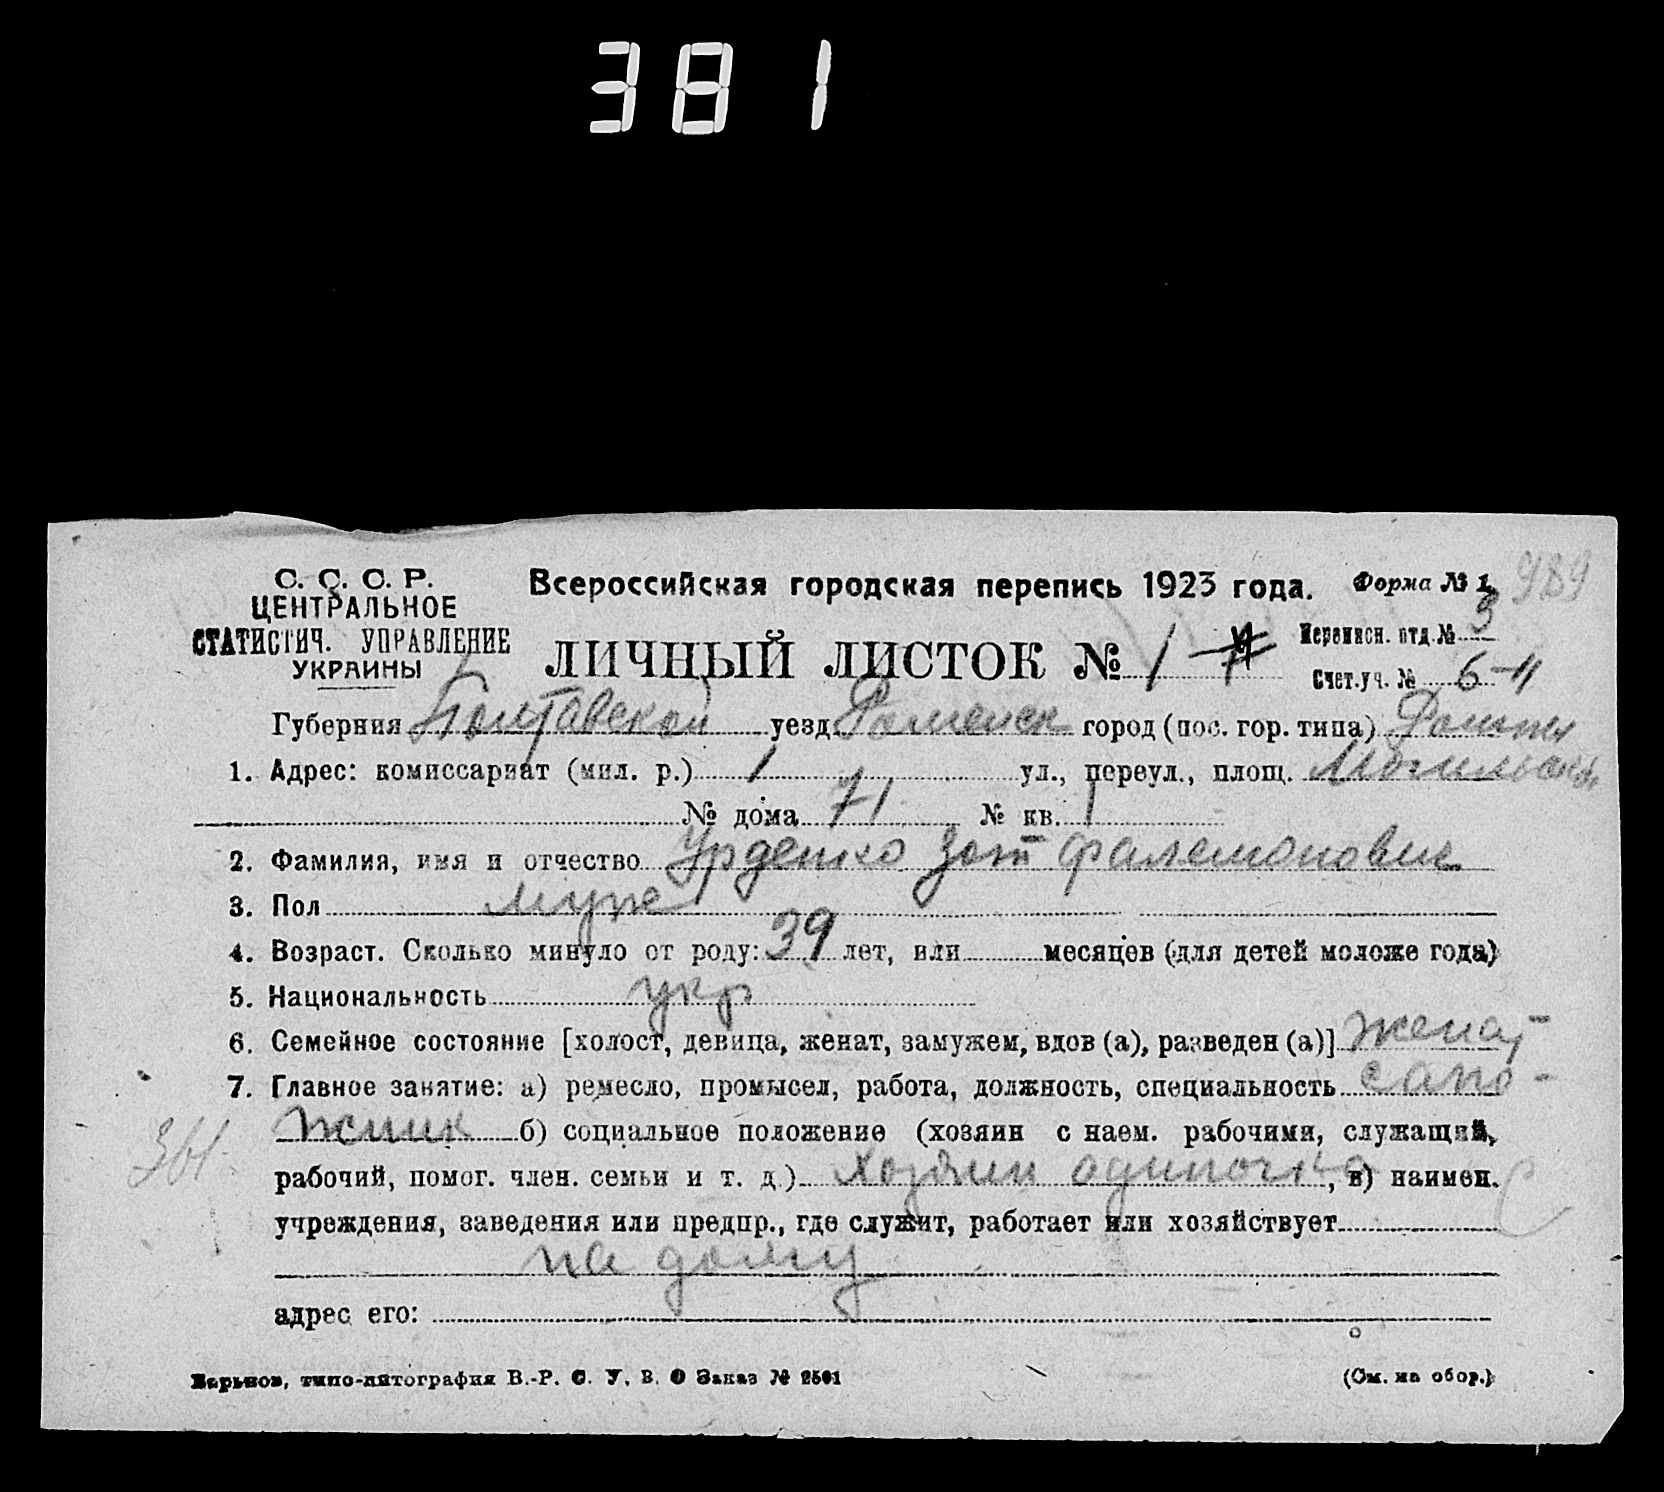 381
С. С. С. Р.
ЦЕНТРАЛЬНОЕ
СТАТИСТИЧ. УПРАВЛЕНИЕ
УКРАИНЫ
Всероссийская городская перепись 1923 года.
Форма № 1
989
ЛИЧНЫЙ ЛИСТОК № 1
Переписн. отд. № 3
Счет. уч. № 6-11
Губерния Полтавской уезд Роменск город (пос. гор. типа) Ромны
1. Адрес: комиссариат (мил. р.) 1 ул., переул., площ.
№ дома 71 № кв. 1
2. Фамилия, имя и отчество Урденко Зот Фалемонович
3. Пол муже
4. Возраст. Сколько минуло от роду: 39 лет, или месяцев (для детей моложе года)
5. Национальность укр
6. Семейное состояние [холост, девица, женат, замужем, вдов (а), разведен (а)] женат
7. Главное занятие: а) ремесло, промысел, работа, должность, специальность сапо-
жник б) социальное положение (хозяин с наем. рабочими, служащий,
361
рабочий, помог. член. семьи и т. д.) Хозяин одиночка, в) наимен.
учреждения, заведения или предпр., где служит, работает или хозяйствует
на дому
адрес его:
Харьков, типо-литография В.-Р. С. У. В. О Заказ № 2501
(См. на обор.)